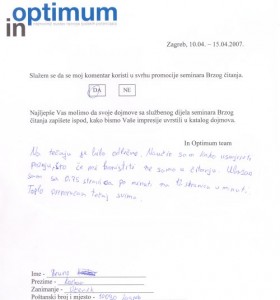 in optimum
Zagreb, 10.04. – 15.04.2007.
Slažem se da se moj komentar koristi u svrhu promocije seminara Brzog čitanja.
DA NE
Najljepše Vas molimo da svoje dojmove sa službenog dijela seminara Brzog
čitanja zapišete ispod, kako bismo Vaše impresije uvrstili u katalog dojmova.
In Optimum team
Na tečaju je bilo odlično. Naučio sam kako usmjeriti
pažnju, što će mi koristiti ne samo u čitanju. Ušao
sam sa 0,75 stranica po minuti na 12 stranica u minuti.
Toplo preporučam tečaj svima.
Ime -
Prezime -
Zanimanje - Učenik
Poštanski broj i mjesto - 10090 Zagreb